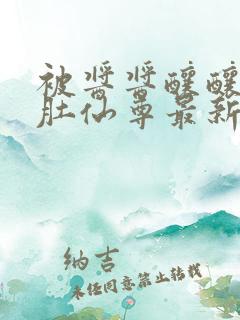 被酱酱酿酿
肚仙尊最新
纳吉
未经同意禁止转载